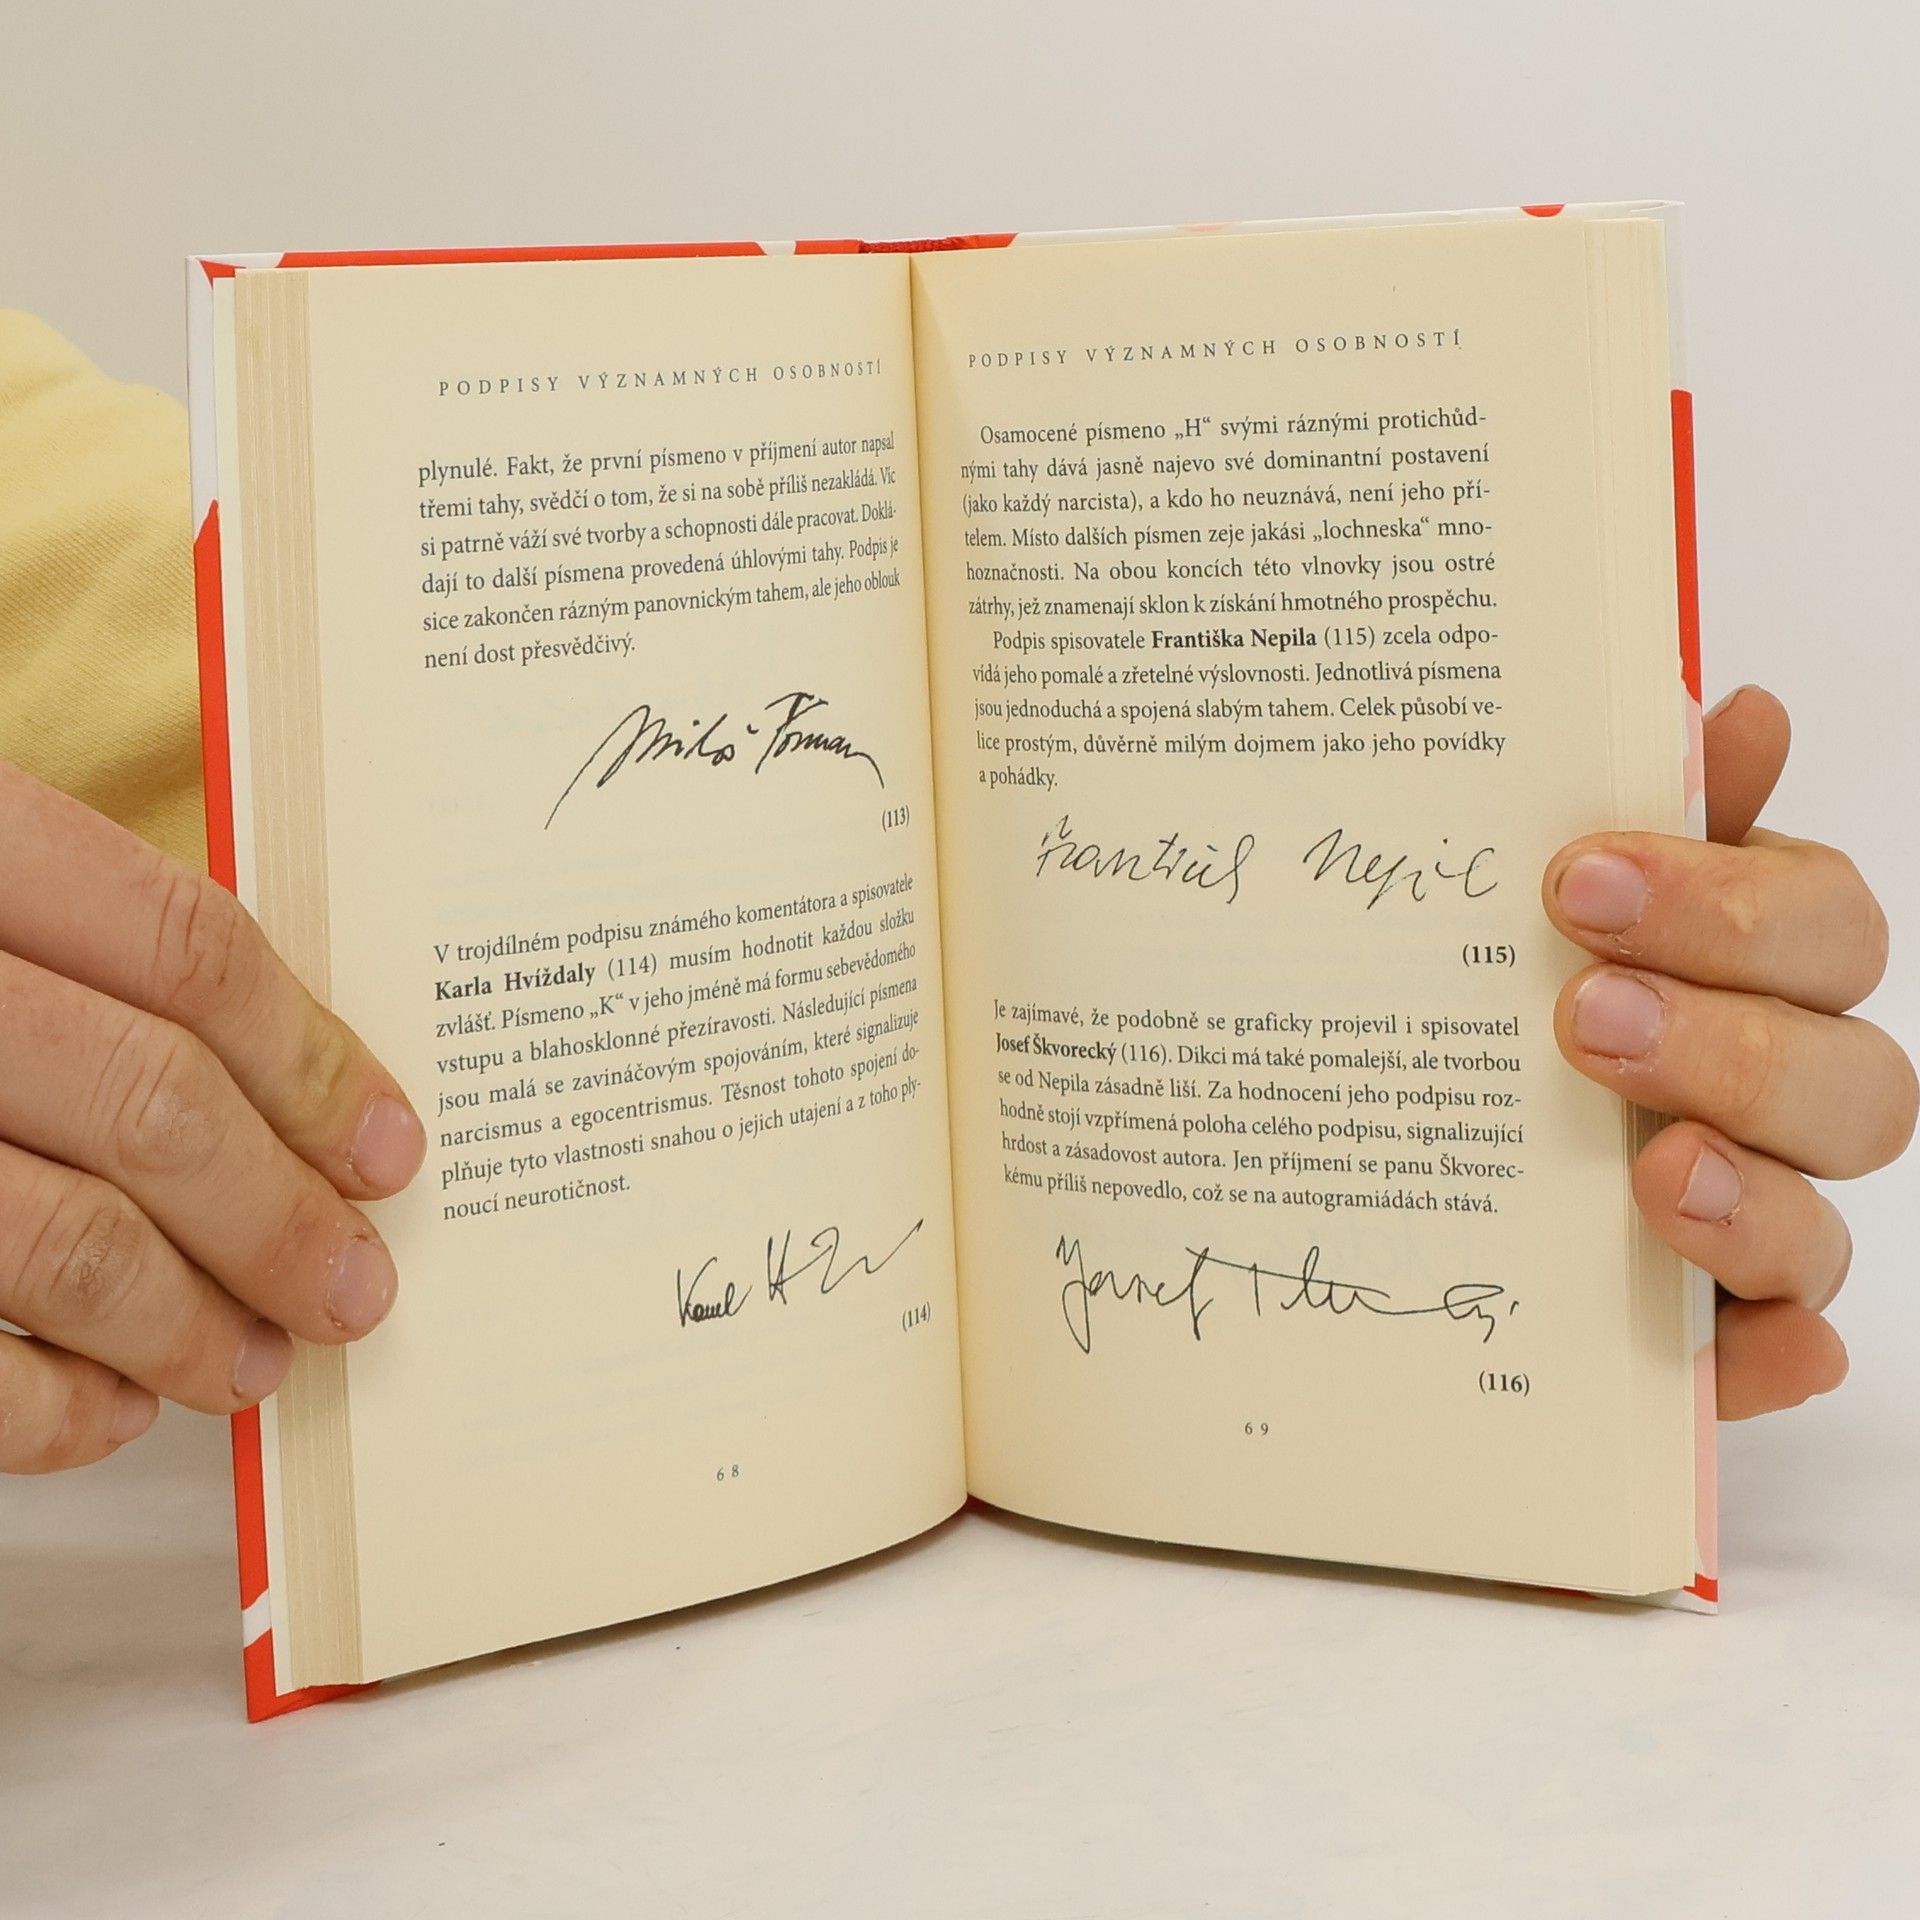 PODPISY VÝZNAMNÝCH OSOBNOSTÍ
plynulé. Fakt, že první písmeno v příjmení autor napsal
třemi tahy, svědčí o tom, že si na sobě příliš nezakládá. Víc
si patrně váží své tvorby a schopnosti dále pracovat. Doklá-
dají to další písmena provedená úhlovými tahy. Podpis je
sice zakončen rázným panovnickým tahem, ale jeho oblouk
není dost přesvědčivý.
Miloš Forman
(113)
V trojdílném podpisu známého komentátora a spisovatele
Karla Hvížďaly (114) musím hodnotit každou složku
zvlášť. Písmeno „K“ v jeho jméně má formu sebevědomého
vstupu a blahosklonné přezíravosti. Následující písmena
jsou malá se zavináčovým spojováním, které signalizuje
narcismus a egocentrismus. Těsnost tohoto spojení do-
plňuje tyto vlastnosti snahou o jejich utajení a z toho ply-
noucí neurotičnost.
Karel H
(114)
68
PODPISY VÝZNAMNÝCH OSOBNOSTÍ
Osamocené písmeno „H“ svými ráznými protichůd-
nými tahy dává jasně najevo své dominantní postavení
(jako každý narcista), a kdo ho neuznává, není jeho pří-
telem. Místo dalších písmen zeje jakási „lochneska“ mno-
hoznačnosti. Na obou koncích této vlnovky jsou ostré
zátrhy, jež znamenají sklon k získání hmotného prospěchu.
Podpis spisovatele Františka Nepila (115) zcela odpo-
vídá jeho pomalé a zřetelné výslovnosti. Jednotlivá písmena
jsou jednoduchá a spojená slabým tahem. Celek působí ve-
lice prostým, důvěrně milým dojmem jako jeho povídky
a pohádky.
František Nepil
(115)
Je zajímavé, že podobně se graficky projevil i spisovatel
Josef Škvorecký (116). Dikci má také pomalejší, ale tvorbou
se od Nepila zásadně liší. Za hodnocení jeho podpisu roz-
hodně stojí vzpřímená poloha celého podpisu, signalizující
hrdost a zásadovost autora. Jen příjmení se panu Škvorec-
kému příliš nepovedlo, což se na autogramiádách stává.
Josef
(116)
69